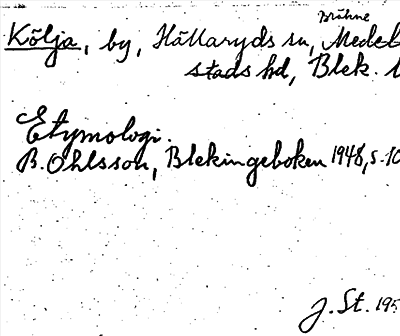 Bräkne
Kölja, by, Hällaryds sn, Medel
stads hd, Blek. l
Etymologi.
B. Ohlsson, Blekingeboken 1948, s. 10
J. St. 195